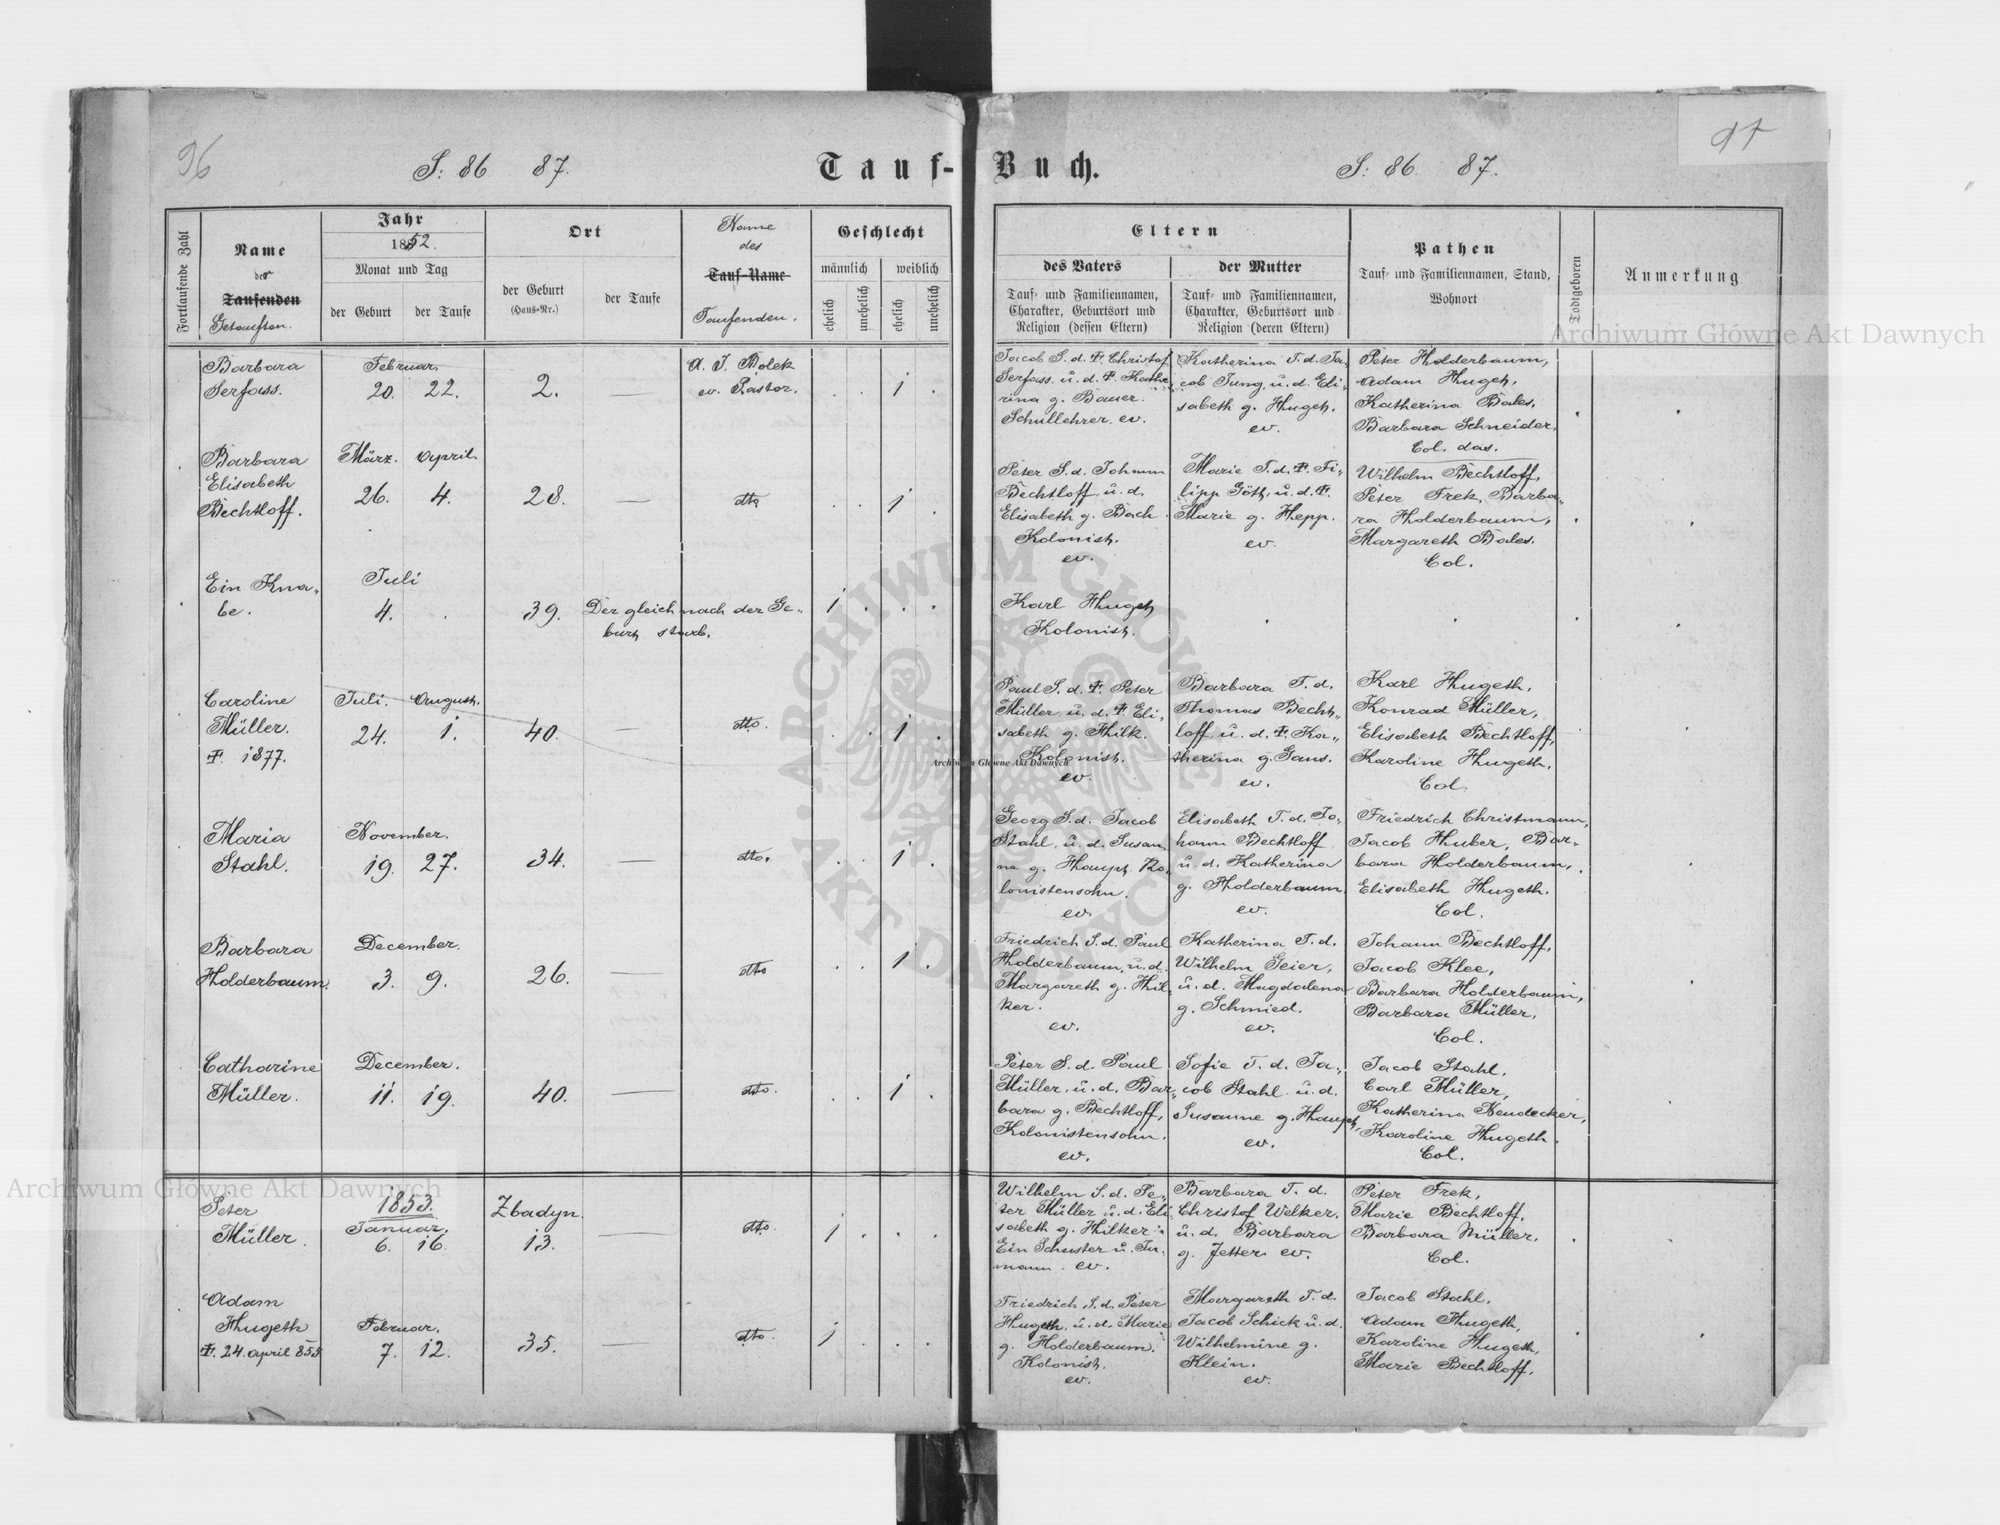 96
S: 86 87.
Tauf-Buch.
S: 86 87.
97
Fortlaufende Zahl
Name
des
Taufenden
Getauften.
Jahr
1852.
Monat und Tag
der Geburt
der Taufe
Ort
der Geburt
(Haus-Nr.)
der Taufe
Name
des
Tauf-Name
Taufenden.
Geschlecht
männlich
weiblich
ehelich
unehelich
ehelich
unehelich
Eltern
des Vaters
Tauf- und Familiennamen,
Charakter, Geburtsort und
Religion (dessen Eltern)
der Mutter
Tauf- und Familiennamen,
Charakter, Geburtsort und
Religion (deren Eltern)
Pathen
Tauf- und Familiennamen, Stand,
Wohnort
Todtgeboren
Anmerkung
Barbara
Serfass.
Februar.
20. 22.
2.
—
A. J. Bolek
ev. Pastor.
1
Jacob S. d. Ŧ Christof
Serfass. u. d. Ŧ Kathe
rina g. Bauer.
Schullehrer. ev.
Katherina T. d. Ja-
cob Jung, u. d. Eli-
sabeth g. Hugeth.
ev.
Peter Holderbaum,
Adam Hugeth,
Katherina Bales,
Barbara Schneider.
Col. das.
Barbara
Elisabeth
Bechtloff.
März. April.
26. 4.
28.
—
dto
1
Peter S. d. Johann
Bechtloff u. d.
Elisabeth g. Bach
Kolonist.
ev.
Marie T. d. Ŧ. Fi-
lipp Göth, u. d. Ŧ.
Marie g. Hepp.
ev.
Wilhelm Bechtloff,
Peter Frek, Barba-
ra Holderbaum,
Margareth Bales.
Col.
Ein Kna-
be.
Juli
4.
39.
Der gleich nach der Ge-
burt starb.
1
Karl Hugeth
Kolonist.
Caroline
Müller.
Ŧ. 1877.
Juli. August.
24. 1.
40.
—
dto.
1
Paul S. d. Ŧ. Peter
Müller u. d. Ŧ. Eli-
sabeth g. Hilk.
Kolonist.
ev.
Barbara T. d.
Thomas Becht-
loff u. d. Ŧ. Ka-
therina g. Gans.
ev.
Karl Hugeth,
Konrad Müller,
Elisabeth Bechtloff,
Karoline Hugeth.
Col.
Maria
Stahl.
November.
19. 27.
34.
—
dto.
1
Georg S. d. Jacob
Stahl, u. d. Susan-
na g. Haupt Ko-
lonistensohn.
ev.
Elisabeth T. d. Jo-
hann Bechtloff
u. d. Katherina
g. Holderbaum.
ev.
Friedrich Christmann,
Jacob Huber, Bar-
bara Holderbaum,
Elisabeth Hugeth.
Col.
Barbara
Holderbaum.
December.
3. 9.
26.
—
dto
1
Friedrich S. d. Paul
Holderbaum, u. d.
Margareth g. Hil-
ker.
ev.
Katherina T. d.
Wilhelm Geier,
u. d. Magdalena
g. Schmied.
ev.
Johann Bechtloff,
Jacob Klee,
Barbara Holderbaum,
Barbara Müller.
Col.
Catharine
Müller.
December.
11. 19.
40.
—
dto.
1
Peter S. d. Paul
Müller, u. d. Bar-
bara g. Bechtloff,
Kolonistensohn.
ev.
Sofie T. d. Ja-
cob Stahl u. d.
Susanne g. Haupt,
ev.
Jacob Stahl,
Carl Müller,
Katherina Neudecker,
Karoline Hugeth.
Col.
Peter
Müller.
1853.
Januar.
6. 16.
Zbadyn.
13.
—
dto.
1
Wilhelm S. d. Pe-
ter Müller u. d. Eli-
sabeth g. Hilker
Ein Schuster u.
ev.
Barbara T. d.
Christof Welker.
u. d. Barbara
g. Jetter. ev.
Peter Frek,
Marie Bechtloff,
Barbara Müller.
Col.
Adam
Hugeth
Ŧ. 24. April 855
Februar.
7. 12.
35.
—
dto.
1
Friedrich S. d. Peter
Hugeth, u. d. Marie
g. Holderbaum.
Kolonist.
ev.
Margareth T. d.
Jacob Schick u. d.
Wilhelmine g.
Klein.
ev.
Jacob Stahl,
Adam Hugeth,
Karoline Hugeth,
Marie Bechtloff.
Archiwum Główne Akt Dawnych
Archiwum Główne Akt Dawnych
Archiwum Główne Akt Dawnych
ARCHIWUM GŁÓWNE AKT DAWNYCH